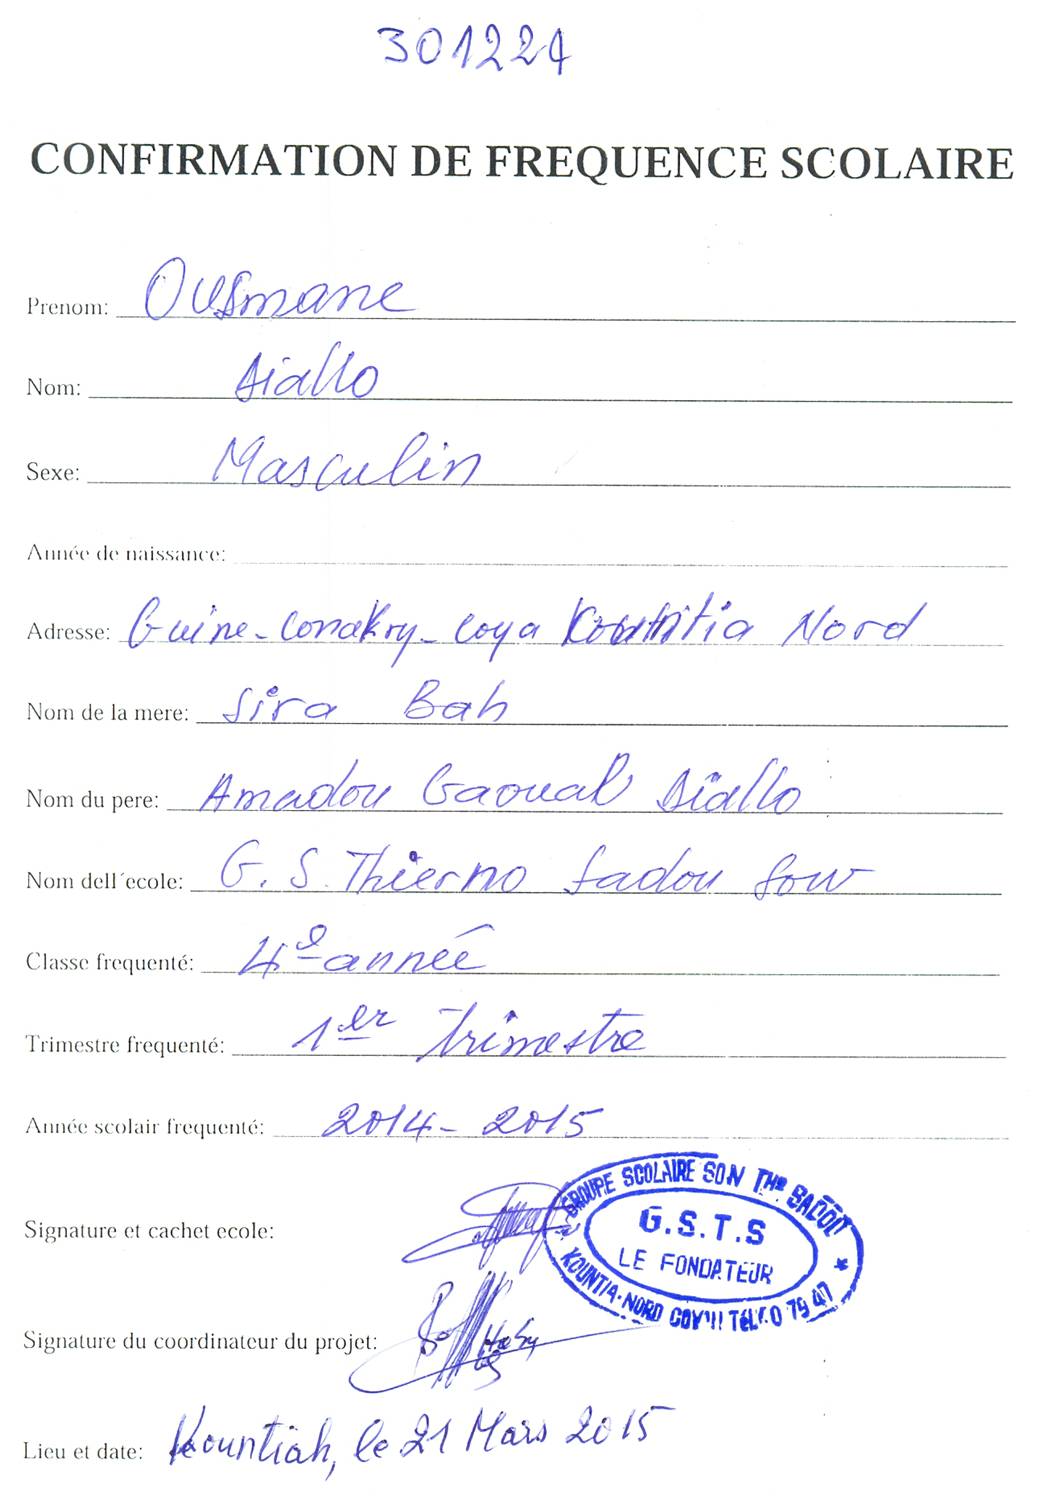 301224
CONFIRMATION DE FREQUENCE SCOLAIRE
Prenom: Ousmane
Nom: Diallo
Sexe: Masculin
Année de naissance:
Adresse: Guine-Conakry-Coya Kountia Nord
Nom de la mere: Sira Bah
Nom du pere: Amadou Gaoual Diallo
Nom dell´ecole: G. S. Thierno Sadou Sow
Classe frequenté: 4e année
Trimestre frequenté: 1er Trimestre
Année scolair frequenté: 2014-2015
GROUPE SCOLAIRE SON THE SADOU
G.S.T.S
LE FONDATEUR
KOUNTIA-NORD TEL 79 47
Signature et cachet ecole:
Signature du coordinateur du projet:
Lieu et date: Kountiah, le 21 Mars 2015